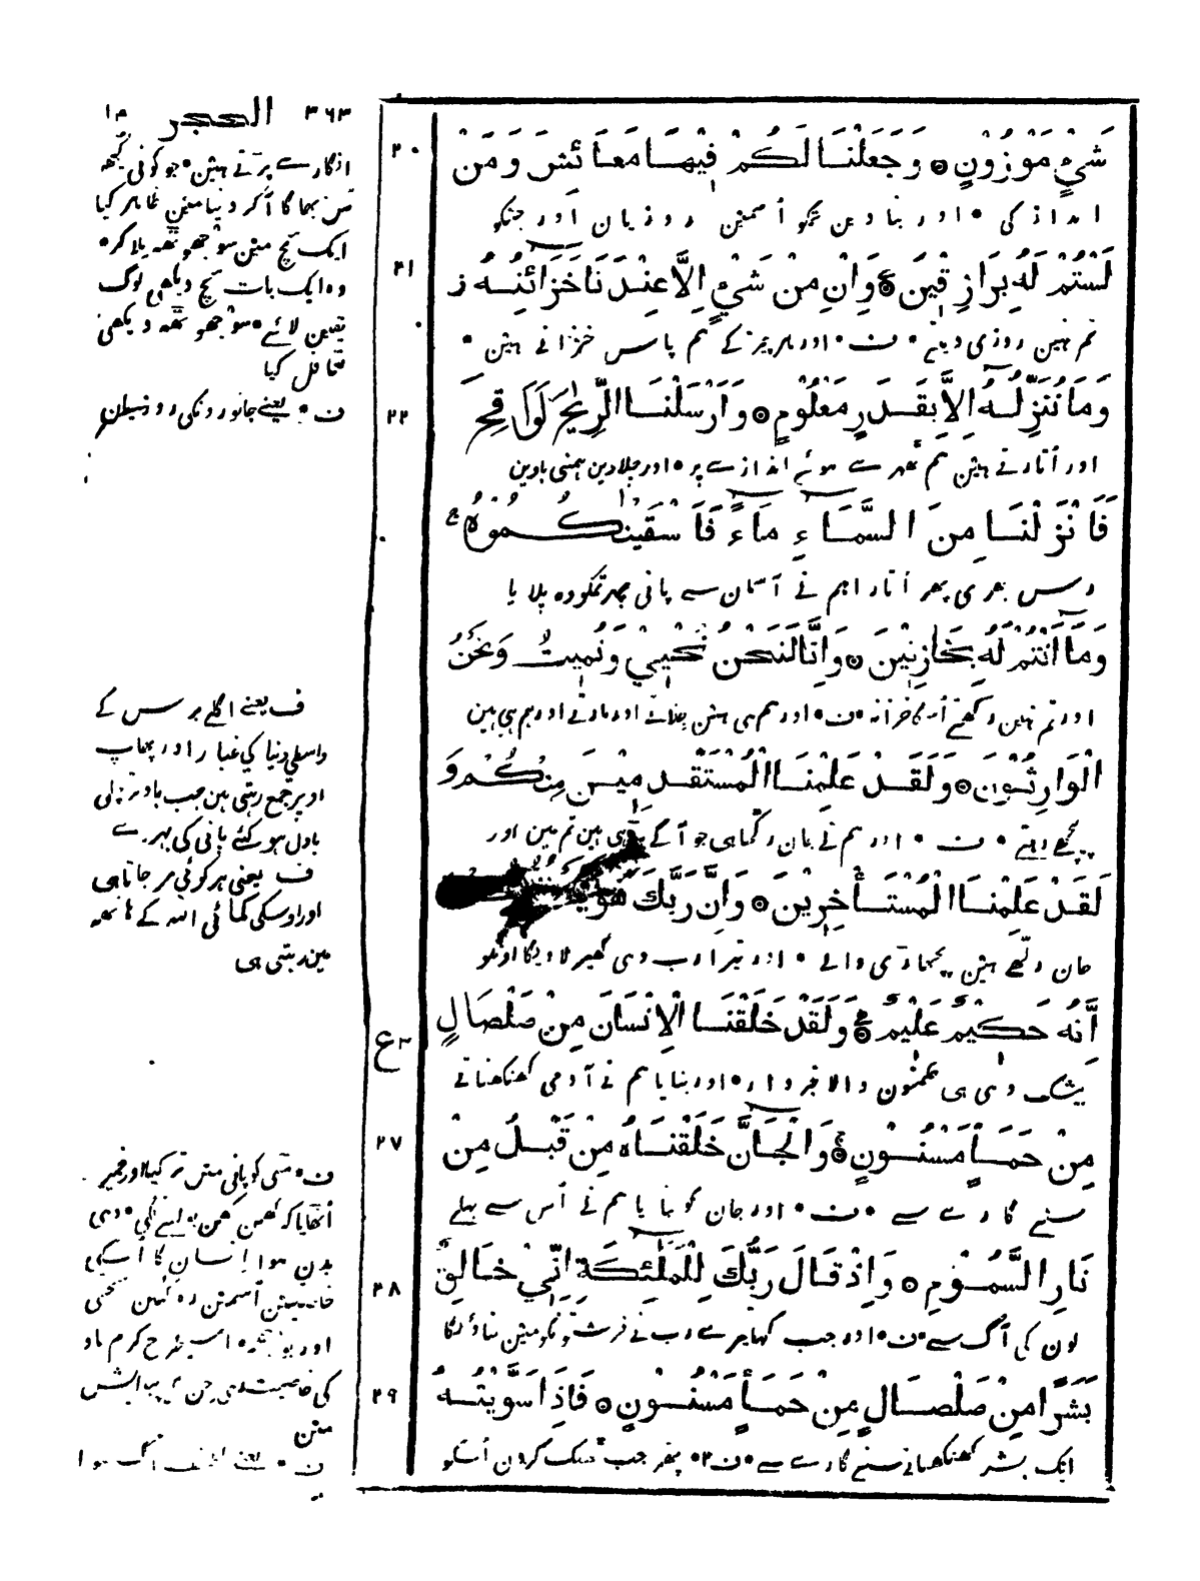 ۳۶۳ الحجر ۱۴
شَيْءٍ مَوْزُوْنٍ ۝ وَجَعَلْنَا لَكُمْ فِيْهَا مَعَائِشَ وَمَنْ
۲۰
انداز کی ٭ اور بنا دین تمکو اُسمین روزیان اور جنکو
لَسْتُمْ لَهُ بِرَازِقِيْنَ ۝ وَاِنْ مِنْ شَيْءٍ اِلَّا عِنْدَنَا خَزَائِنُهُ ز
۲۱
تم نہین روزی دیتے ٭ ف ٭ اور ہر چیز کے ہم پاس خزانے ہین ٭
وَمَا نُنَزِّلُهُ اِلَّا بِقَدَرٍ مَعْلُوْمٍ ۝ وَاَرْسَلْنَا الرِّيٰحَ لَوَاقِحَ
۲۲
اور اُتارتے ہین ہم ٹھہرے ہوئے اندازے پر ٭ اور چلادین ہمنی باوین
فَاَنْزَلْنَا مِنَ السَّمَاءِ مَاءً فَاَسْقَيْنٰكُمُوْهُ ج
رس بھری پھر اُتارا ہم نے آسمان سے پانی پھر تمکو وہ پلایا
وَمَا اَنْتُمْ لَهُ بِخَازِنِيْنَ ۝ وَاِنَّا لَنَحْنُ نُحْيِيْ وَنُمِيْتُ وَنَحْنُ
اور تم نہین رکھتے اُسکا خزانہ ٭ ف ٭ اور ہم ہی ہین جلاتے اور مارتے اور ہم ہی ہین
الْوَارِثُوْنَ ۝ وَلَقَدْ عَلِمْنَا الْمُسْتَقْدِمِيْنَ مِنْكُمْ وَ
پیچھے رہتے ٭ ف ٭ اور ہم نے جان رکھا ہی جو آگے ہی ہین تم مین اور
لَقَدْ عَلِمْنَا الْمُسْتَأْخِرِيْنَ ۝ وَاِنَّ رَبَّكَ هُوَ
جان رکھے ہین پچھاڑی والے ٭ اور تیرا رب وہی گھیر لاویگا اونکو
اِنَّهُ حَكِيْمٌ عَلِيْمٌ ۝ وَلَقَدْ خَلَقْنَا الْاِنْسَانَ مِنْ صَلْصَالٍ
ع ۳
بیشک وہی ہی حکمتون والا خبردار ٭ اور بنایا ہم نے آدمی کھنکھناتے
مِنْ حَمَأٍ مَسْنُوْنٍ ۝ وَالْجَانَّ خَلَقْنَاهُ مِنْ قَبْلُ مِنْ
۲۷
سنے گارے سے ٭ ف ٭ اور جان کو بنایا ہم نے اُس سے پہلے
نَارِ السَّمُوْمِ ۝ وَاِذْ قَالَ رَبُّكَ لِلْمَلٰئِكَةِ اِنِّيْ خَالِقٌ
۲۸
لون کی آگ سے ٭ ف ٭ اور جب کہا تیرے رب نے فرشتونکو مین بناؤنگا
بَشَرًا مِنْ صَلْصَالٍ مِنْ حَمَأٍ مَسْنُوْنٍ ۝ فَاِذَا سَوَّيْتُهُ
۲۹
ایک بشر کھنکھناتے سنے گارے سے ٭ ف۲ ٭ پھر جب ٹھیک کرون اُسکو
انگارے پڑتے ہین ٭ جو کوئی کچھ
سن بھاگا آکر دنیا مین ظاہر کیا
ایک سچ مین سو جھوٹھ ملا کر ٭
وہ ایک بات سچ دیکھی لوگ
یقین لائے ٭ سو جھوٹھ دیکھی
تغافل کیا
ف ٭ یعنے جانورونکی روزی
ف یعنے اگلے برس کے
واسطی دنیا کی غبار اور بھاپ
اوپر جمع رہتی ہین جب باد
بادل ہو کئے پانی کی بہر
ف یعنی ہر کوئی مر جاتا ہی
اور اوسکی کمائی اللہ کے ہاتھ
مین رہتی ہی
ف ٭ مٹی کو پانی مین تر کیا اور خمیر
اُٹھایا کہ کھن کھن بولنے لگی ٭ وہی
بدن ہوا اِنسان کا اُسکی
خاصیتین اُسمین رہ گئین سختی
اور بوجھ ٭ اسی طرح گرم باد
کی خاصیت رہی جن کی پیدایش
مین
ف ٭ یعنے آگ